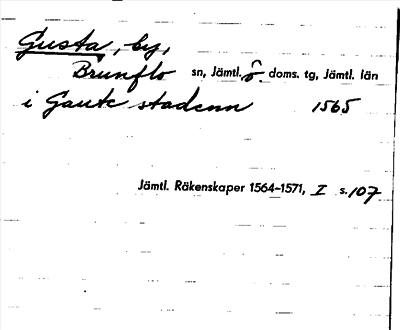 Gusta, by,
Brunflo sn, Jämtl. ö. doms. tg, Jämtl. län
i Gaute stadenn 1565
Jämtl. Räkenskaper 1564-1571, I s. 107